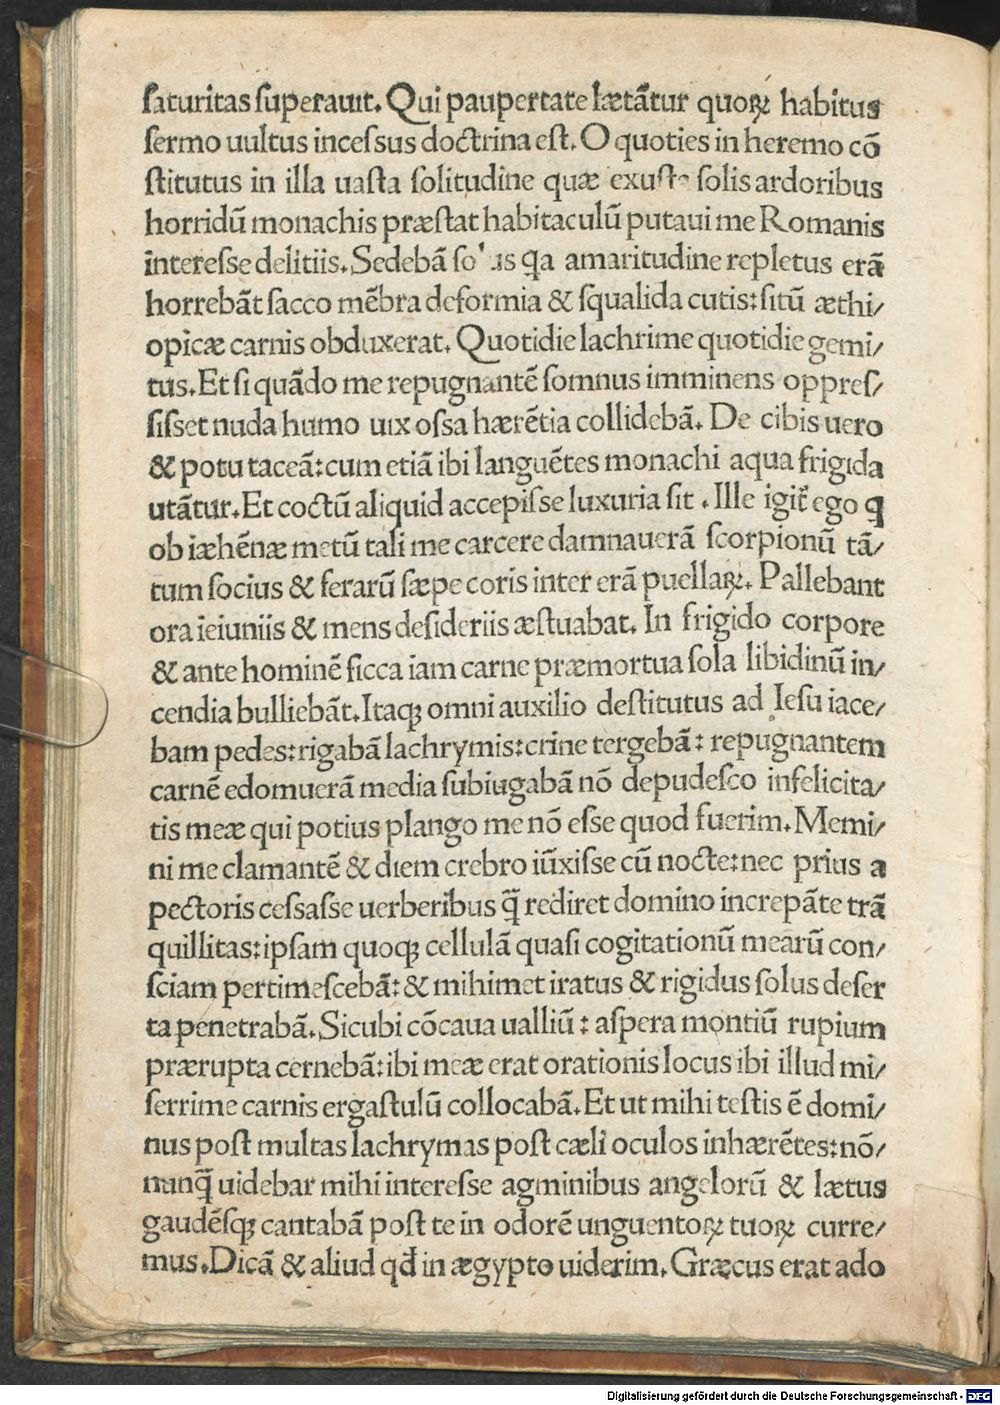 ſaturitas ſuperauit. Qui paupertate lætãtur quoꝝ habitus
ſermo uultus inceſsus doctrina eſt. O quoties in heremo cõ
ſtitutus in illa uaſta ſolitudine quæ ſolis ardoribus
horridũ monachis præſtat habitaculũ putaui me Romanis
intereſse delitiis. Sedebã q̃a amaritudine repletus erã
horrebãt ſacco mẽbra deformia & ſqualida cutis: ſitũ æthi/
opicæ carnis obduxerat. Quotidie lachrime quotidie gemi/
tus. Et ſi quãdo me repugnantẽ ſomnus imminens oppreſ/
ſiſset nuda humo uix oſsa hærẽtia collidebã. De cibis uero
& potu taceã: cum etiã ibi languẽtes monachi aqua frigida
utãtur. Et coctũ aliquid accepiſse luxuria ſit. Ille igit̃ ego ꝗ
ob iæhẽnæ metũ tali me carcere damnauerã ſcorpionũ tã/
tum ſocius & ferarũ ſæpe coris inter erã puellaꝝ. Pallebant
ora ieiuniis & mens deſideriis æſtuabat. In frigido corpore
& ante hominẽ ſicca iam carne præmortua ſola libidinũ in/
cendia bulliebãt. Itaqꝫ omni auxilio deſtitutus ad Ieſu iace/
bam pedes: rigabã lachrymis: crine tergebã: repugnantem
carnẽ edomuerã media ſubiugabã nõ depudeſco infelicita/
tis meæ qui potius plango me nõ eſse quod fuerim. Memi/
ni me clamantẽ & diem crebro iũxiſse cũ nocte: nec prius a
pectoris ceſsaſse uerberibus q̃̃ rediret domino increpãte trã
quillitas: ipſam quoqꝫ cellulã quaſi cogitationũ mearũ con/
ſciam pertimeſcebã: & mihimet iratus & rigidus ſolus deſer
ta penetrabã. Sicubi cõcaua ualliũ: aſpera montiũ rupium
prærupta cernebã: ibi meæ erat orationis locus ibi illud mi/
ſerrime carnis ergaſtulũ collocabã. Et ut mihi teſtis ẽ domi/
nus poſt multas lachrymas poſt cæli oculos inhærẽtes: nõ/
nunq̃̃ uidebar mihi intereſse agminibus angelorũ & lætus
gaudẽſqꝫ cantabã poſt te in odorẽ unguentoꝝ tuoꝝ curre/
mus. Dicã & aliud qđ in ægypto uiderim. Græcus erat ado
Digitalisierung gefördert durch die Deutsche Forschungsgemeinschaft - DFG